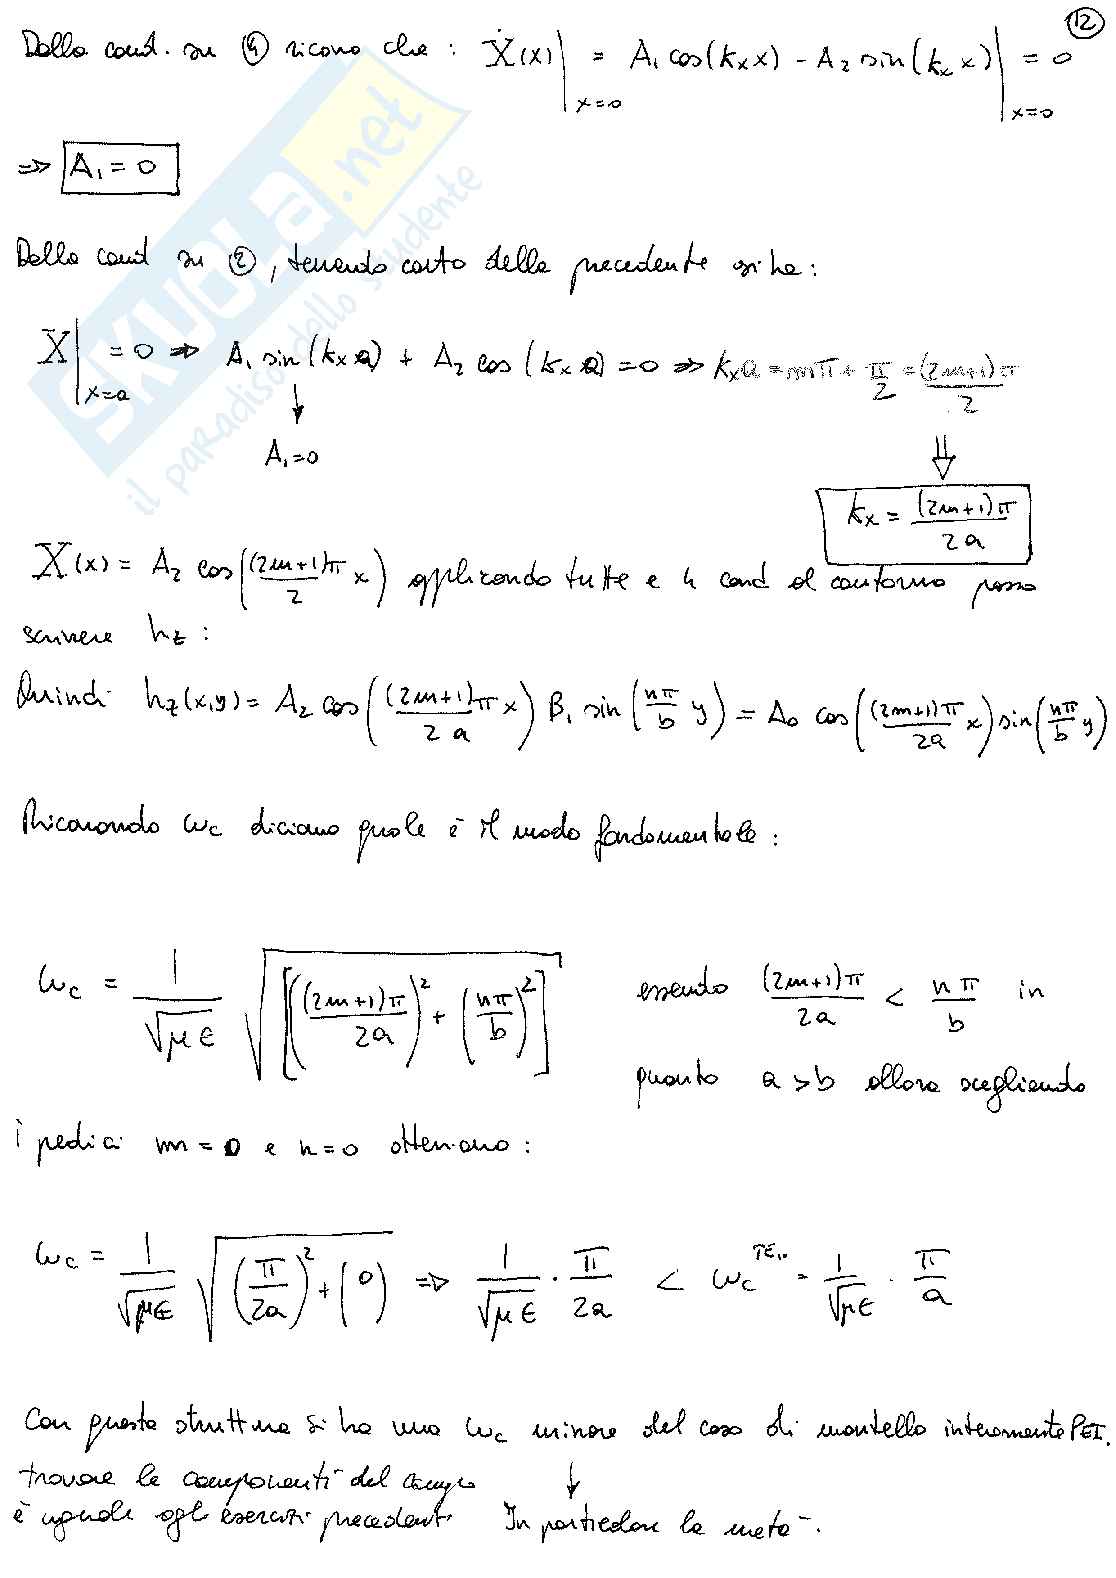 12
Dalla cond. su ④ ricavo che : Ẋ(x)|x=0 = A₁ cos(kₓx) - A₂ sin(kₓx)|x=0 = 0
⇒ A₁ = 0
Dalla cond su ②, tenendo conto della precedente si ha :
X|x=a = 0 ⇒ A₁ sin(kₓa) + A₂ cos(kₓa) = 0 ⇒ kₓa = mπ + π/2 = (2m+1)π/2
⇓
A₁=0
kₓ = (2m+1)π/2a
X(x) = A₂ cos((2m+1)π/2 x) applicando tutte e 4 cond al contorno posso
scrivere hz :
Quindi hz(x,y) = A₂ cos((2m+1)π/2a x) B₁ sin(nπ/b y) = A₀ cos((2m+1)π/2a x) sin(nπ/b y)
Ricavando ωc diciamo quale è il modo fondamentale :
ωc = 1/√με √[((2m+1)π/2a)² + (nπ/b)²] essendo (2m+1)π/2a < nπ/b in
quanto a > b allora scegliendo
i pedici m = 0 e n = 0 otteniamo :
ωc = 1/√με √(π/2a)² + (0) ⇒ 1/√με · π/2a < ωc^TE₁₀ = 1/√με · π/a
Con questa struttura si ha una ωc minore del caso di mantello interamente PEI.
trovare le componenti del campo
è uguale agli esercizi precedenti
↓
In particolare la metà.
SKUOLA.net
il paradiso dello studente